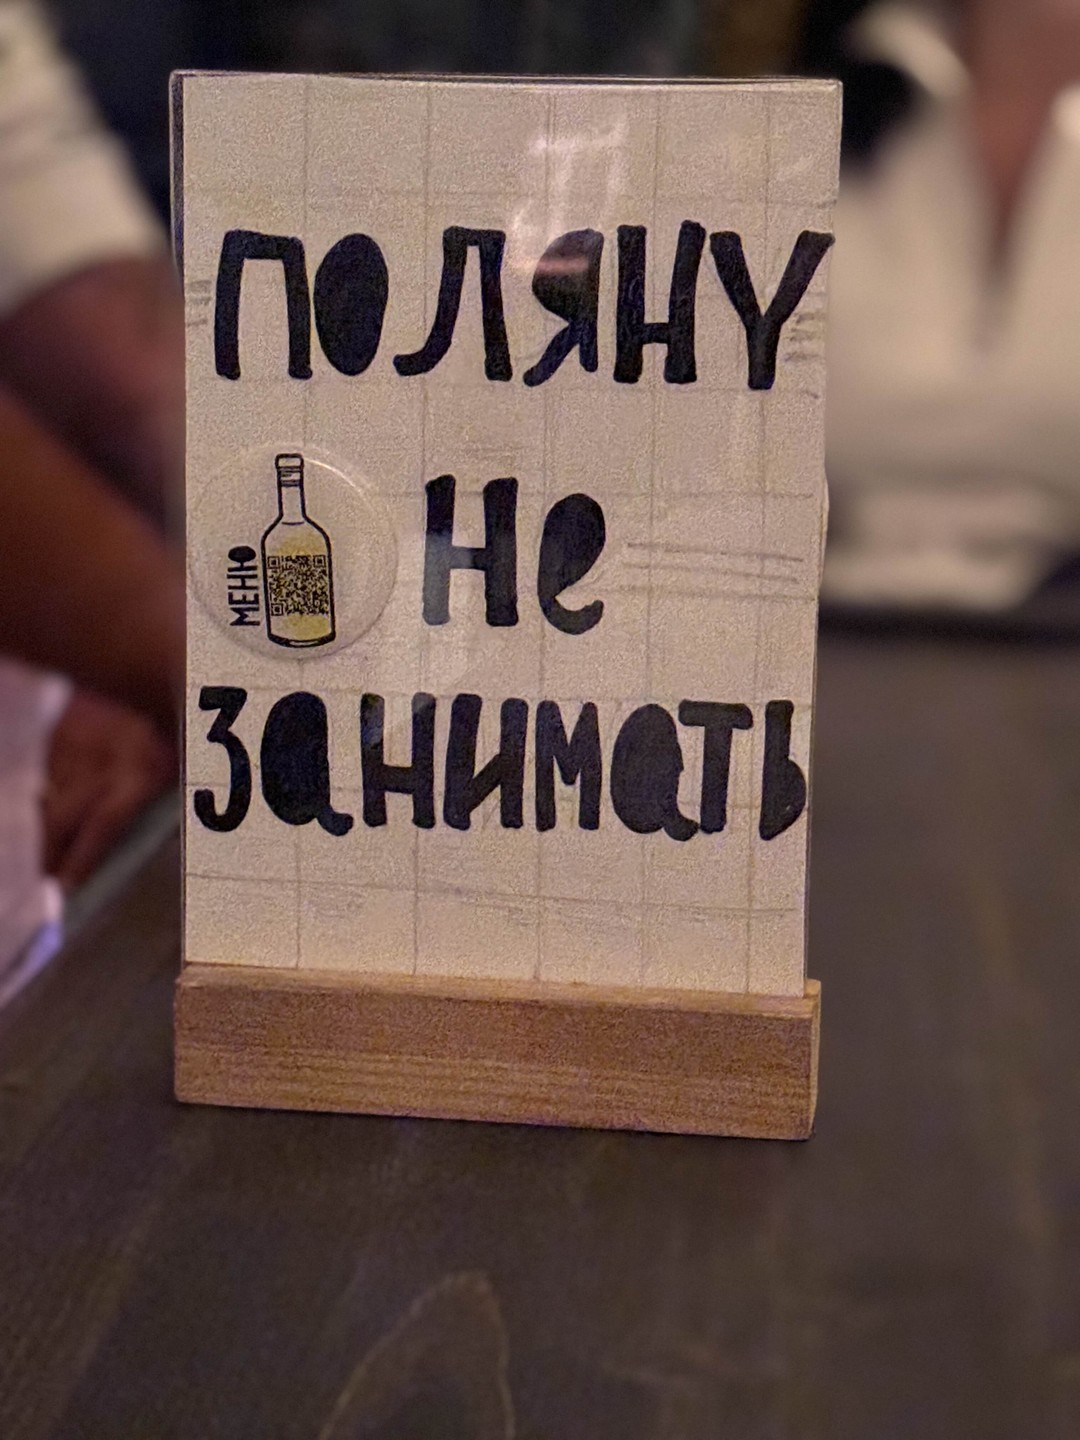 ПОЛЯНУ
Не
МЕНЮ
ЗаНИМаТЬ